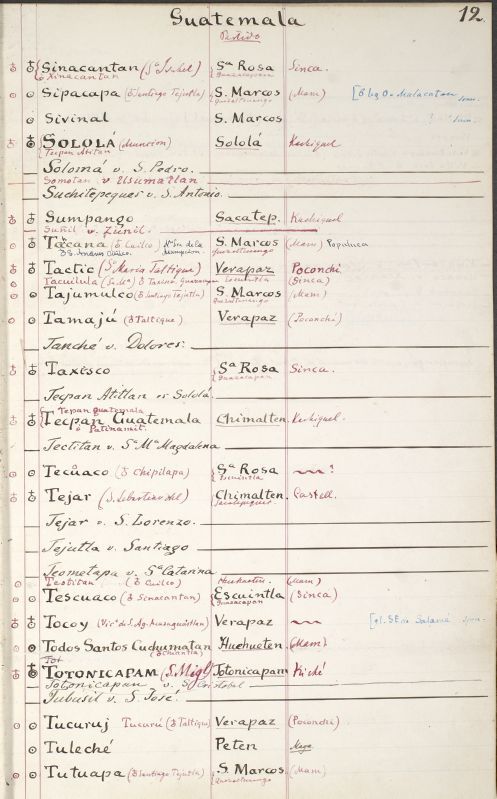 Guatemala 12.
Partido
Sinacantan (Sta Isabel) Sa Rosa Sinca.
Xinacantan Guazacapan
Sipacapa (♁ Santiago Tejutla) S. Marcos (Mam)
Quezaltenango
Sivinal S. Marcos
SOLOLÁ (Asuncion) Sololá Kachiquel
Tecpan Atitan
Solomá v. S. Pedro.
Somotan v. Usumatlan
Suchitepeques v. S. Antonio.
Sumpango Sacatep. Kachiquel
Suñil v. Zúnil.
Tacana (♁ Cuilco) Na Sra de la Asuncion S. Marcos (Mam) Populuca
Quezaltenango
Tactic (Sa Maria Taltique) Verapaz Poconchi
Tacuilula (Sa Ma) Escuintla (Sinca)
Tajumulco (♁ Santiago Tejutla) S. Marcos (Mam)
Quezaltenango
Tamajú (♁ Taltique) Verapaz (Poconchi)
Tanché v. Dolores.
Taxesco Sa Rosa Sinca.
Guazacapan
Tecpan Atitlan es Sololá.
Tecpan Guatemala
Tecpan Guatemala Chimalten. Kachiquel.
o Patinamit.
Tectitan v. Sa Ma Magdalena
Tecuaco (♁ Chipilapa) Sa Rosa ?
Escuintla
Tejar (S. Sebastian del) Chimalten. Castell.
Sacatepeques
Tejar v. S. Lorenzo.
Tejutla v. Santiago
Teometapa v. Sa Catarina
Teotitan (♁ Cuilco) Huehueten. (Mam)
Tescuaco (♁ Sinacantan) Escuintla (Sinca)
Guazacapan
Tocoy Verapaz
Todos Santos Cuchumatan Huehueten (Mam)
♁ Chiantla
Tot
TOTONICAPAM (S. Migl) Totonicapam Kiché
Totonicapan v. S. Cristobal
Tubusil v. S. José.
Tucuruj Tucurú (♁ Taltique) Verapaz (Poconchi)
Tuleché Peten Maya
Tutuapa (♁ Santiago Tejutla) S. Marcos (Mam)
Quezaltenango